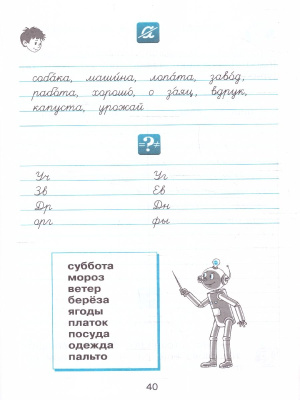 а
собака, машина, лопата, завод,
работа, хорошо, о заяц, вдруг,
капуста, урожай
=?=
Уч Уг
Зв Ев
Др Дн
орг фы
суббота
мороз
ветер
берёза
ягоды
платок
посуда
одежда
пальто
40